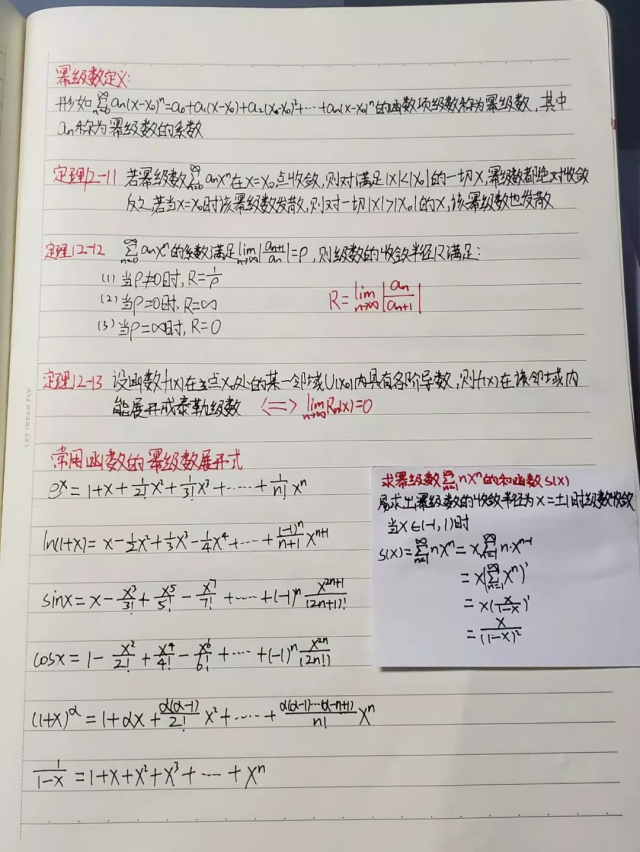 幂级数定义:
形如 ∑_{n=0}^{∞} aₙ(x-x₀)ⁿ=a₀+a₁(x-x₀)+a₂(x-x₀)²+…+aₙ(x-x₀)ⁿ的函数项级数称为幂级数, 其中
aₙ称为幂级数的系数
定理12-11 若幂级数 ∑_{n=0}^{∞} aₙxⁿ在x=x₀点收敛, 则对满足|x|<|x₀|的一切x, 幂级数都绝对收敛
反之, 若当x=x₀时该幂级数发散, 则对一切|x|>|x₀|的x, 该幂级数也发散
定理12-12 ∑_{n=0}^{∞} aₙxⁿ的系数满足 lim_{n→∞}|aₙ₊₁/aₙ|=ρ, 则级数的收敛半径R满足:
(1) 当ρ≠0时, R=1/ρ
(2) 当ρ=0时, R=∞
(3) 当ρ=∞时, R=0
R=lim_{n→∞}|aₙ/aₙ₊₁|
定理12-13 设函数f(x)在点x₀处的某一邻域U(x₀)内具有各阶导数, 则f(x)在该邻域内
能展开成泰勒级数 <=> lim_{n→∞}Rₙ(x)=0
常用函数的幂级数展开式
eˣ=1+x+1/2! x²+1/3! x³+……+1/n! xⁿ
ln(1+x)=x-1/2 x²+1/3 x³-1/4 x⁴+…+(-1)ⁿ/(n+1) xⁿ⁺¹
sinx=x-x³/3!+x⁵/5!-x⁷/7!+……+(-1)ⁿ x²ⁿ⁺¹/(2n+1)!
cosx=1-x²/2!+x⁴/4!-x⁶/6!+……+(-1)ⁿ x²ⁿ/(2n!)
(1+x)^α=1+αx+α(α-1)/2! x²+……+α(α-1)…(α-n+1)/n! xⁿ
1/(1-x)=1+x+x²+x³+…+xⁿ
求幂级数 ∑_{n=1}^{∞} nxⁿ的和函数S(x)
易求出幂级数的收敛半径为x=±1时级数收敛
当x∈(-1,1)时
S(x)=∑_{n=1}^{∞} nxⁿ=x∑_{n=1}^{∞} n·xⁿ⁻¹
=x(∑_{n=1}^{∞} xⁿ)'
=x(x/(1-x))'
=x/(1-x)²